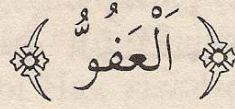 اَلْعَفُوُّ